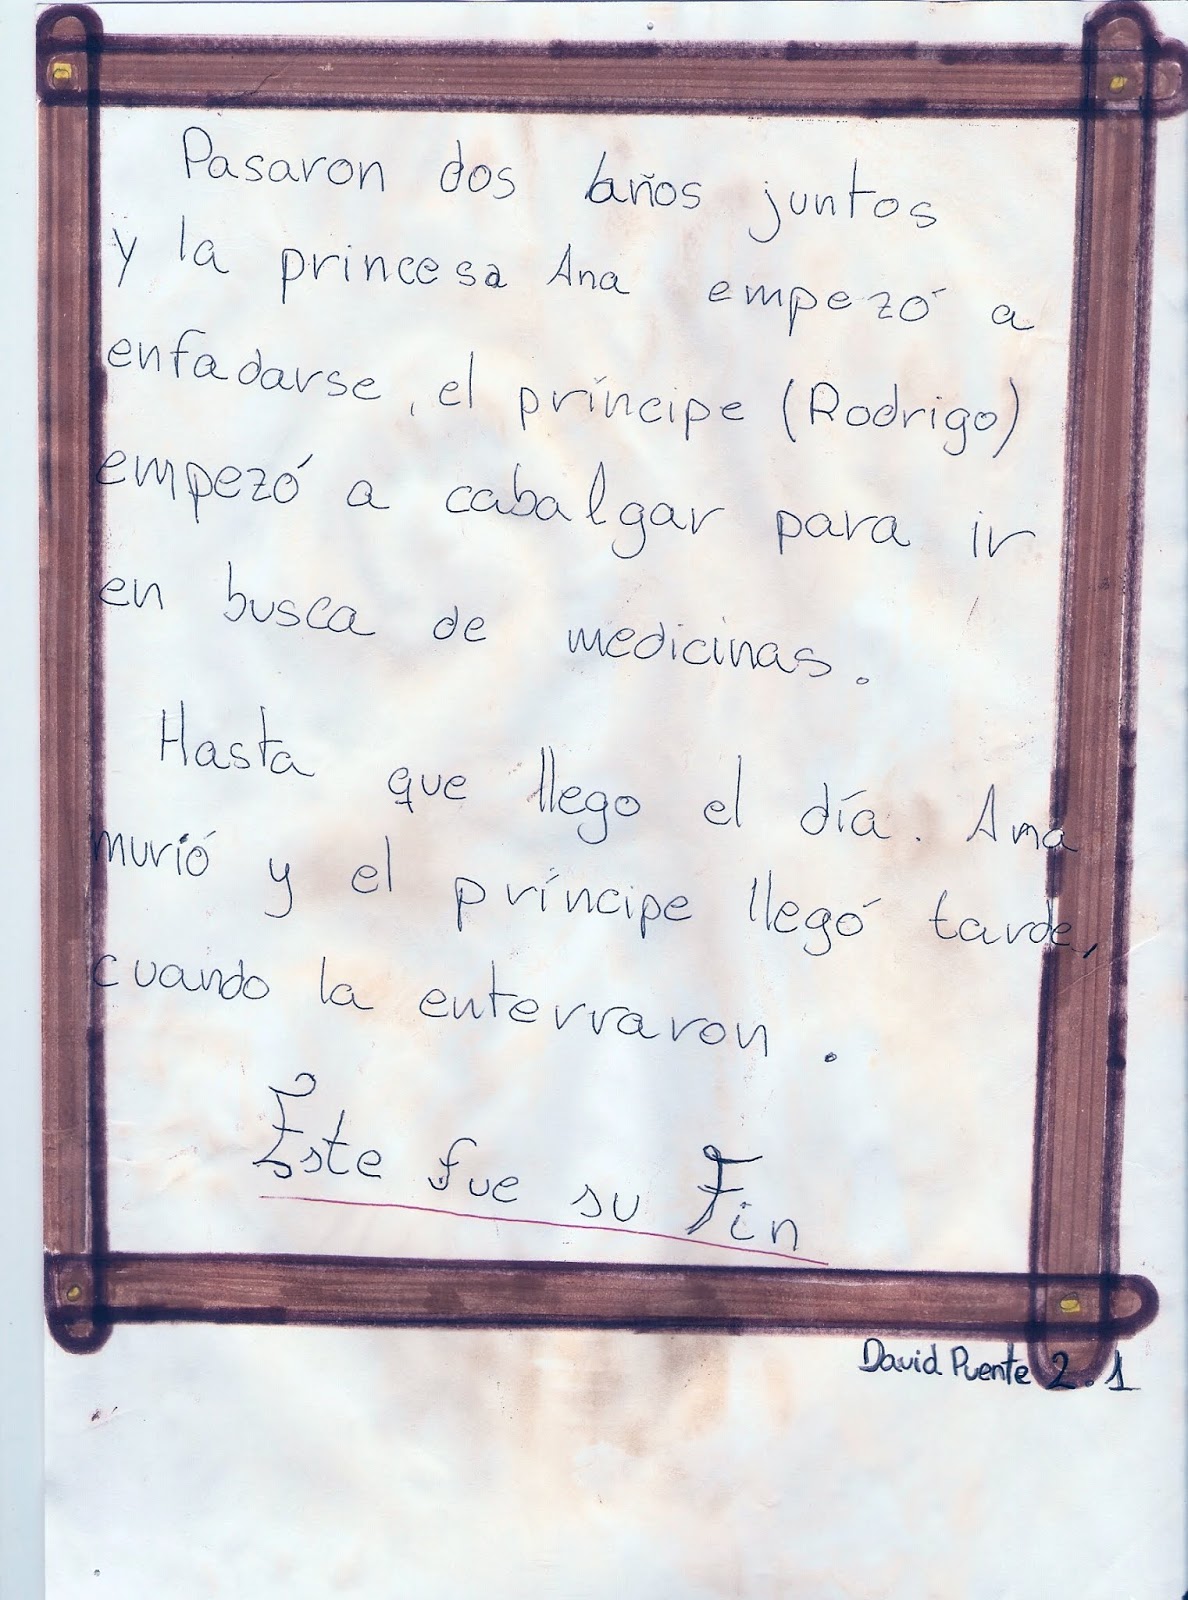 Pasaron dos años juntos
y la princesa Ana empezó a
enfadarse, el príncipe (Rodrigo)
empezó a cabalgar para ir
en busca de medicinas.
Hasta que llego el día. Ana
murió y el príncipe llegó tarde,
cuando la enterraron.
Este fue su Fin
David Puente 2.1